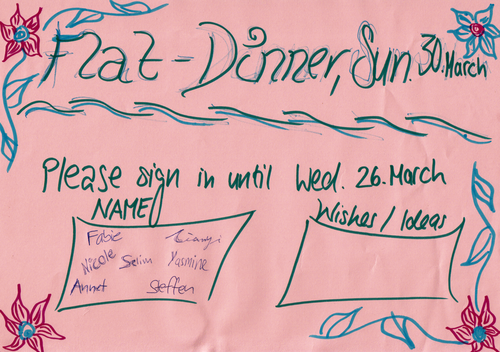 Flat-Dinner, Sun. 30. March
Please sign in until Wed. 26. March
NAME
Wishes / Ideas
Fabie Lianyi
Nicole Selim Yasmine
Annet Steffen